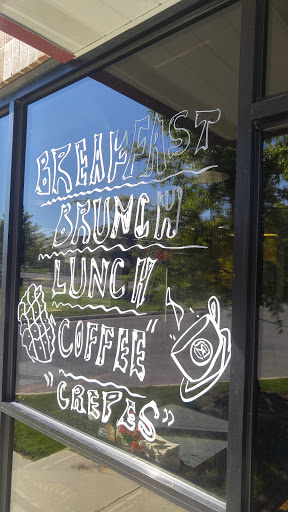 BREAKFAST
BRUNCH
LUNCH
COFFEE"
"CREPES"